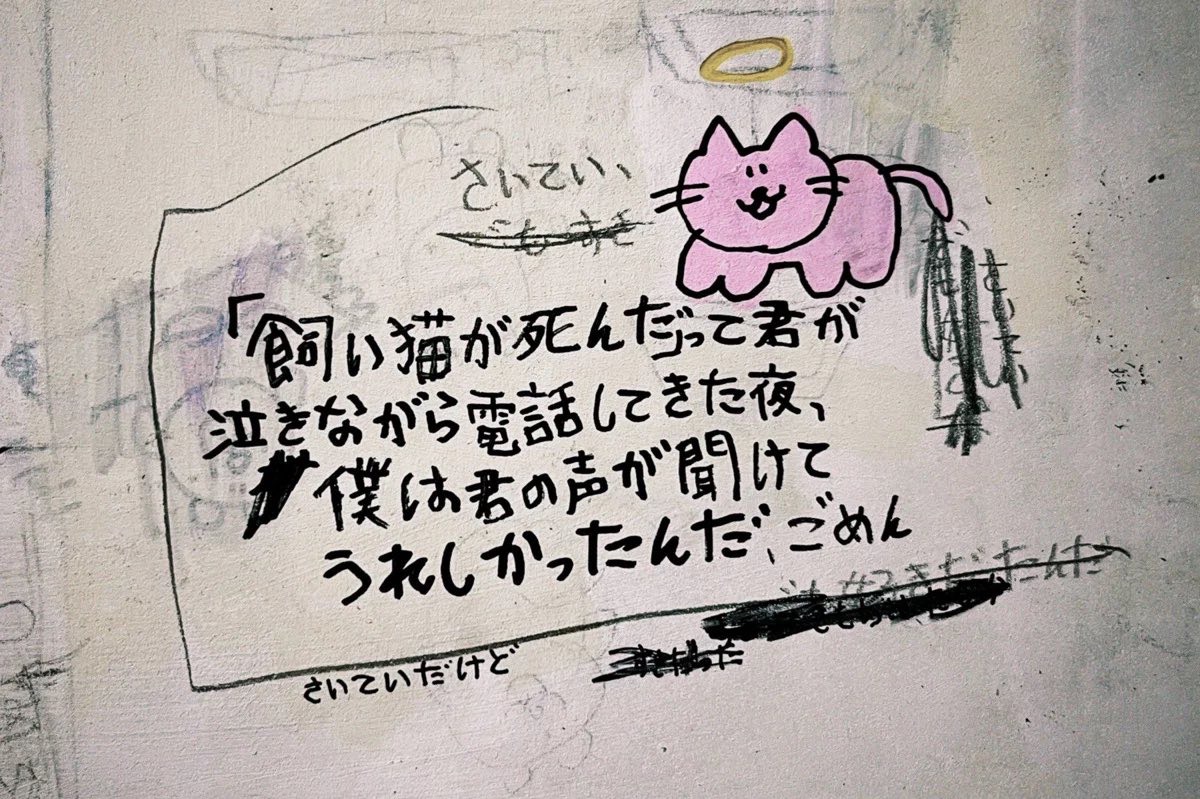 さいてい、
でもすき
「飼い猫が死んだって君が
泣きながら電話してきた夜、
僕は君の声が聞けて
うれしかったんだ、ごめん
さいていだけど
すきだった